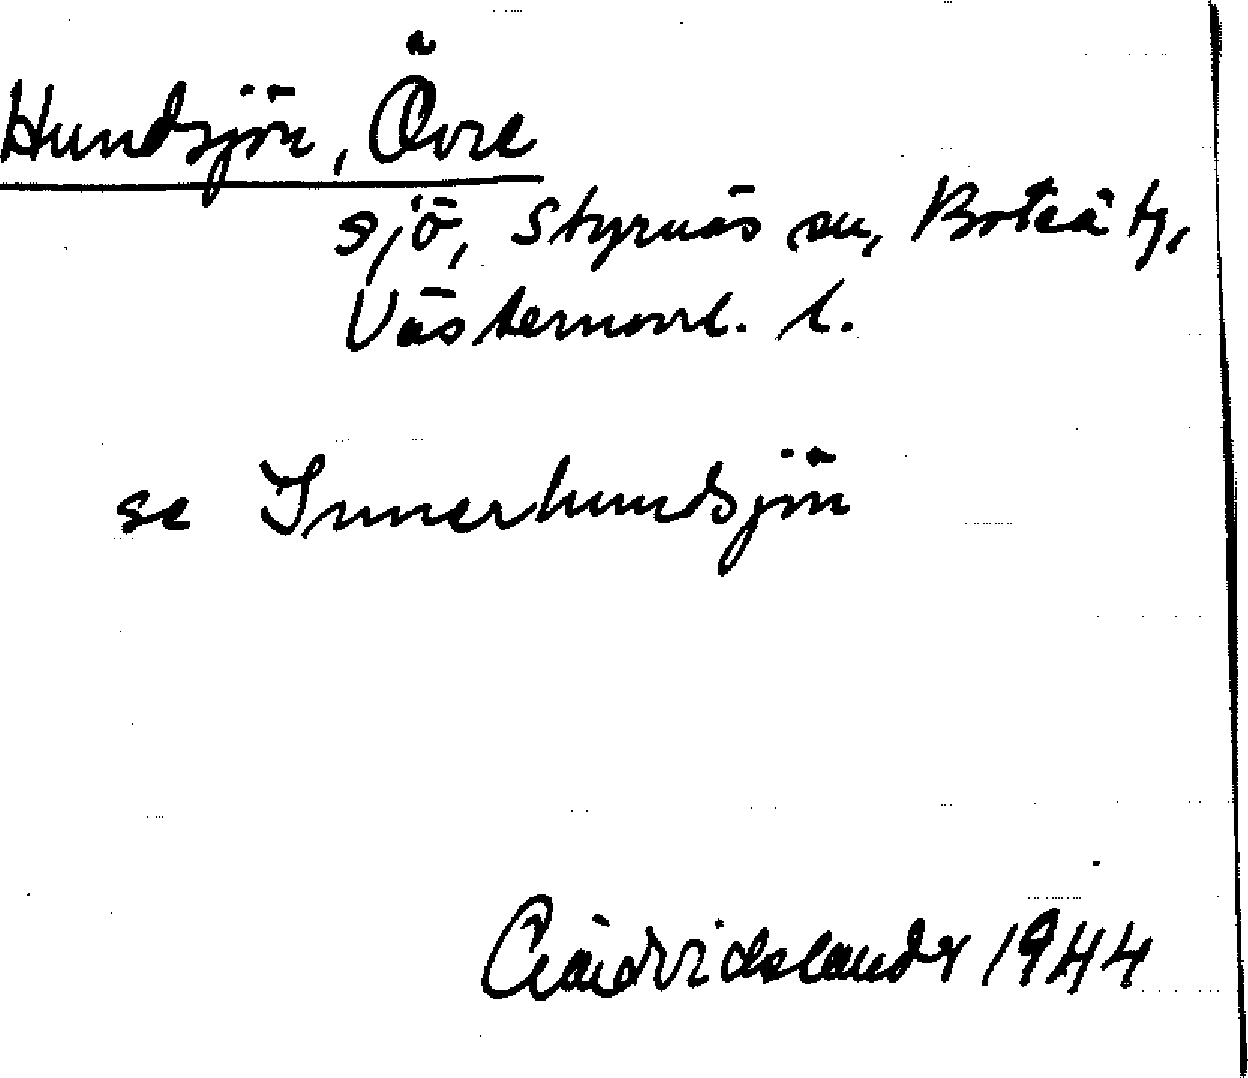 Hundsjön, Övre
sjö, Styrnäs sn, Boteå tg,
Västernorrl. l.
se Innerhundsjön
1944